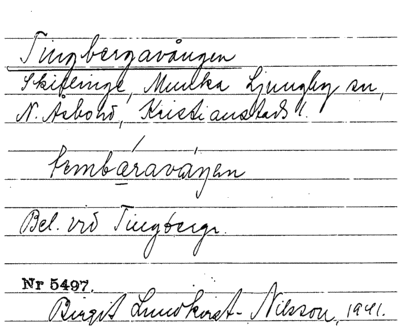 Tingbergavången
Skillinge, Munka Ljungby sn,
N. Åsbohd, Kristianstads l.
tembáravåŋen
Bel. vid Tingberga.
Nr 5497.
Birgit Lundkvist-Nilsson, 1941.